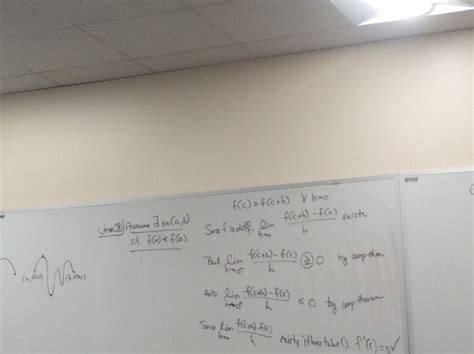 Case ③ Assume ∃ x∈(a,b)
s.t. f(x) < f(a)
(a, f(a))
(b, f(b))
f(c) ≥ f(c+h) ∀ h≈0.
Since f is diff, lim h→0 f(c+h) – f(c) / h exists
But lim h→0⁻ f(c+h) – f(c) / h ≥ 0 by comp thm
And lim h→0⁺ f(c+h) – f(c) / h ≤ 0 by comp theorem
Since lim h→0 f(c+h) – f(c) / h exists, it has to be 0. f'(c) = 0 ✓